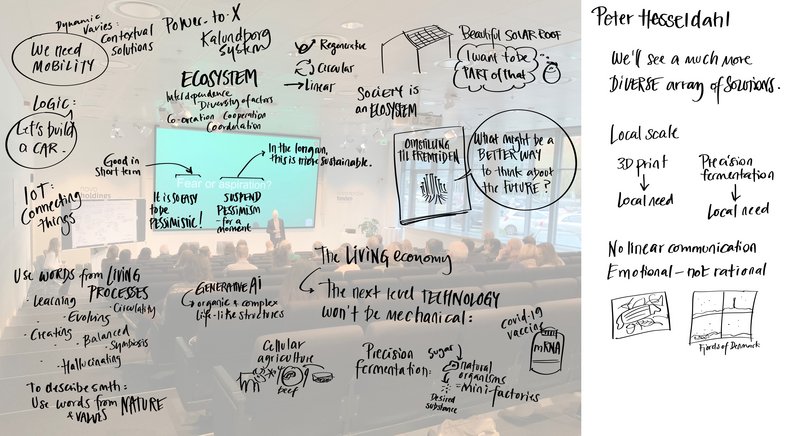 Dynamic
Varies:
Contextual
solutions
We need
MOBILITY
LOGIC:
Let's build
a CAR.
IoT:
Connecting
things
Power-to-X
Kalundborg
System
ECOSYSTEM
Interdependence
Diversity of actors
Co-creation Cooperation
Coordination
Regenerative
Circular
Linear
Beautiful SOLAR ROOF
I want to be
PART of that
SOCIETY is
an ECOSYSTEM
OMSTILLING
TIL FREMTIDEN
What might be a
BETTER WAY
to think about
the FUTURE?
Good in
short term
In the long run,
this is more sustainable.
Fear or aspiration?
It is so easy
to be
PESSIMISTIC!
SUSPEND
PESSIMISM
- for a
moment
holdings
Use WORDS from LIVING
PROCESSES
- Learning
- Circularity
- Evolving
- Creating
- Balanced
- Symbiosis
- Hallucinating
To describe smth:
Use words from NATURE
& VALUES
GENERATIVE Ai
organic & complex
life-like structures
The LIVING economy
The next level TECHNOLOGY
won't be mechanical:
Cellular
agriculture
Beef
Precision
fermentation:
sugar
natural
organisms
= Mini-factories
Desired
substance
covid-19
vaccine
mRNA
Peter Hesseldahl
We'll see a much more
DIVERSE array of SOLUTIONS.
Local scale
3D print
Local need
Precision
fermentation
Local need
No linear communication
Emotional - not rational
Fjords of Denmark